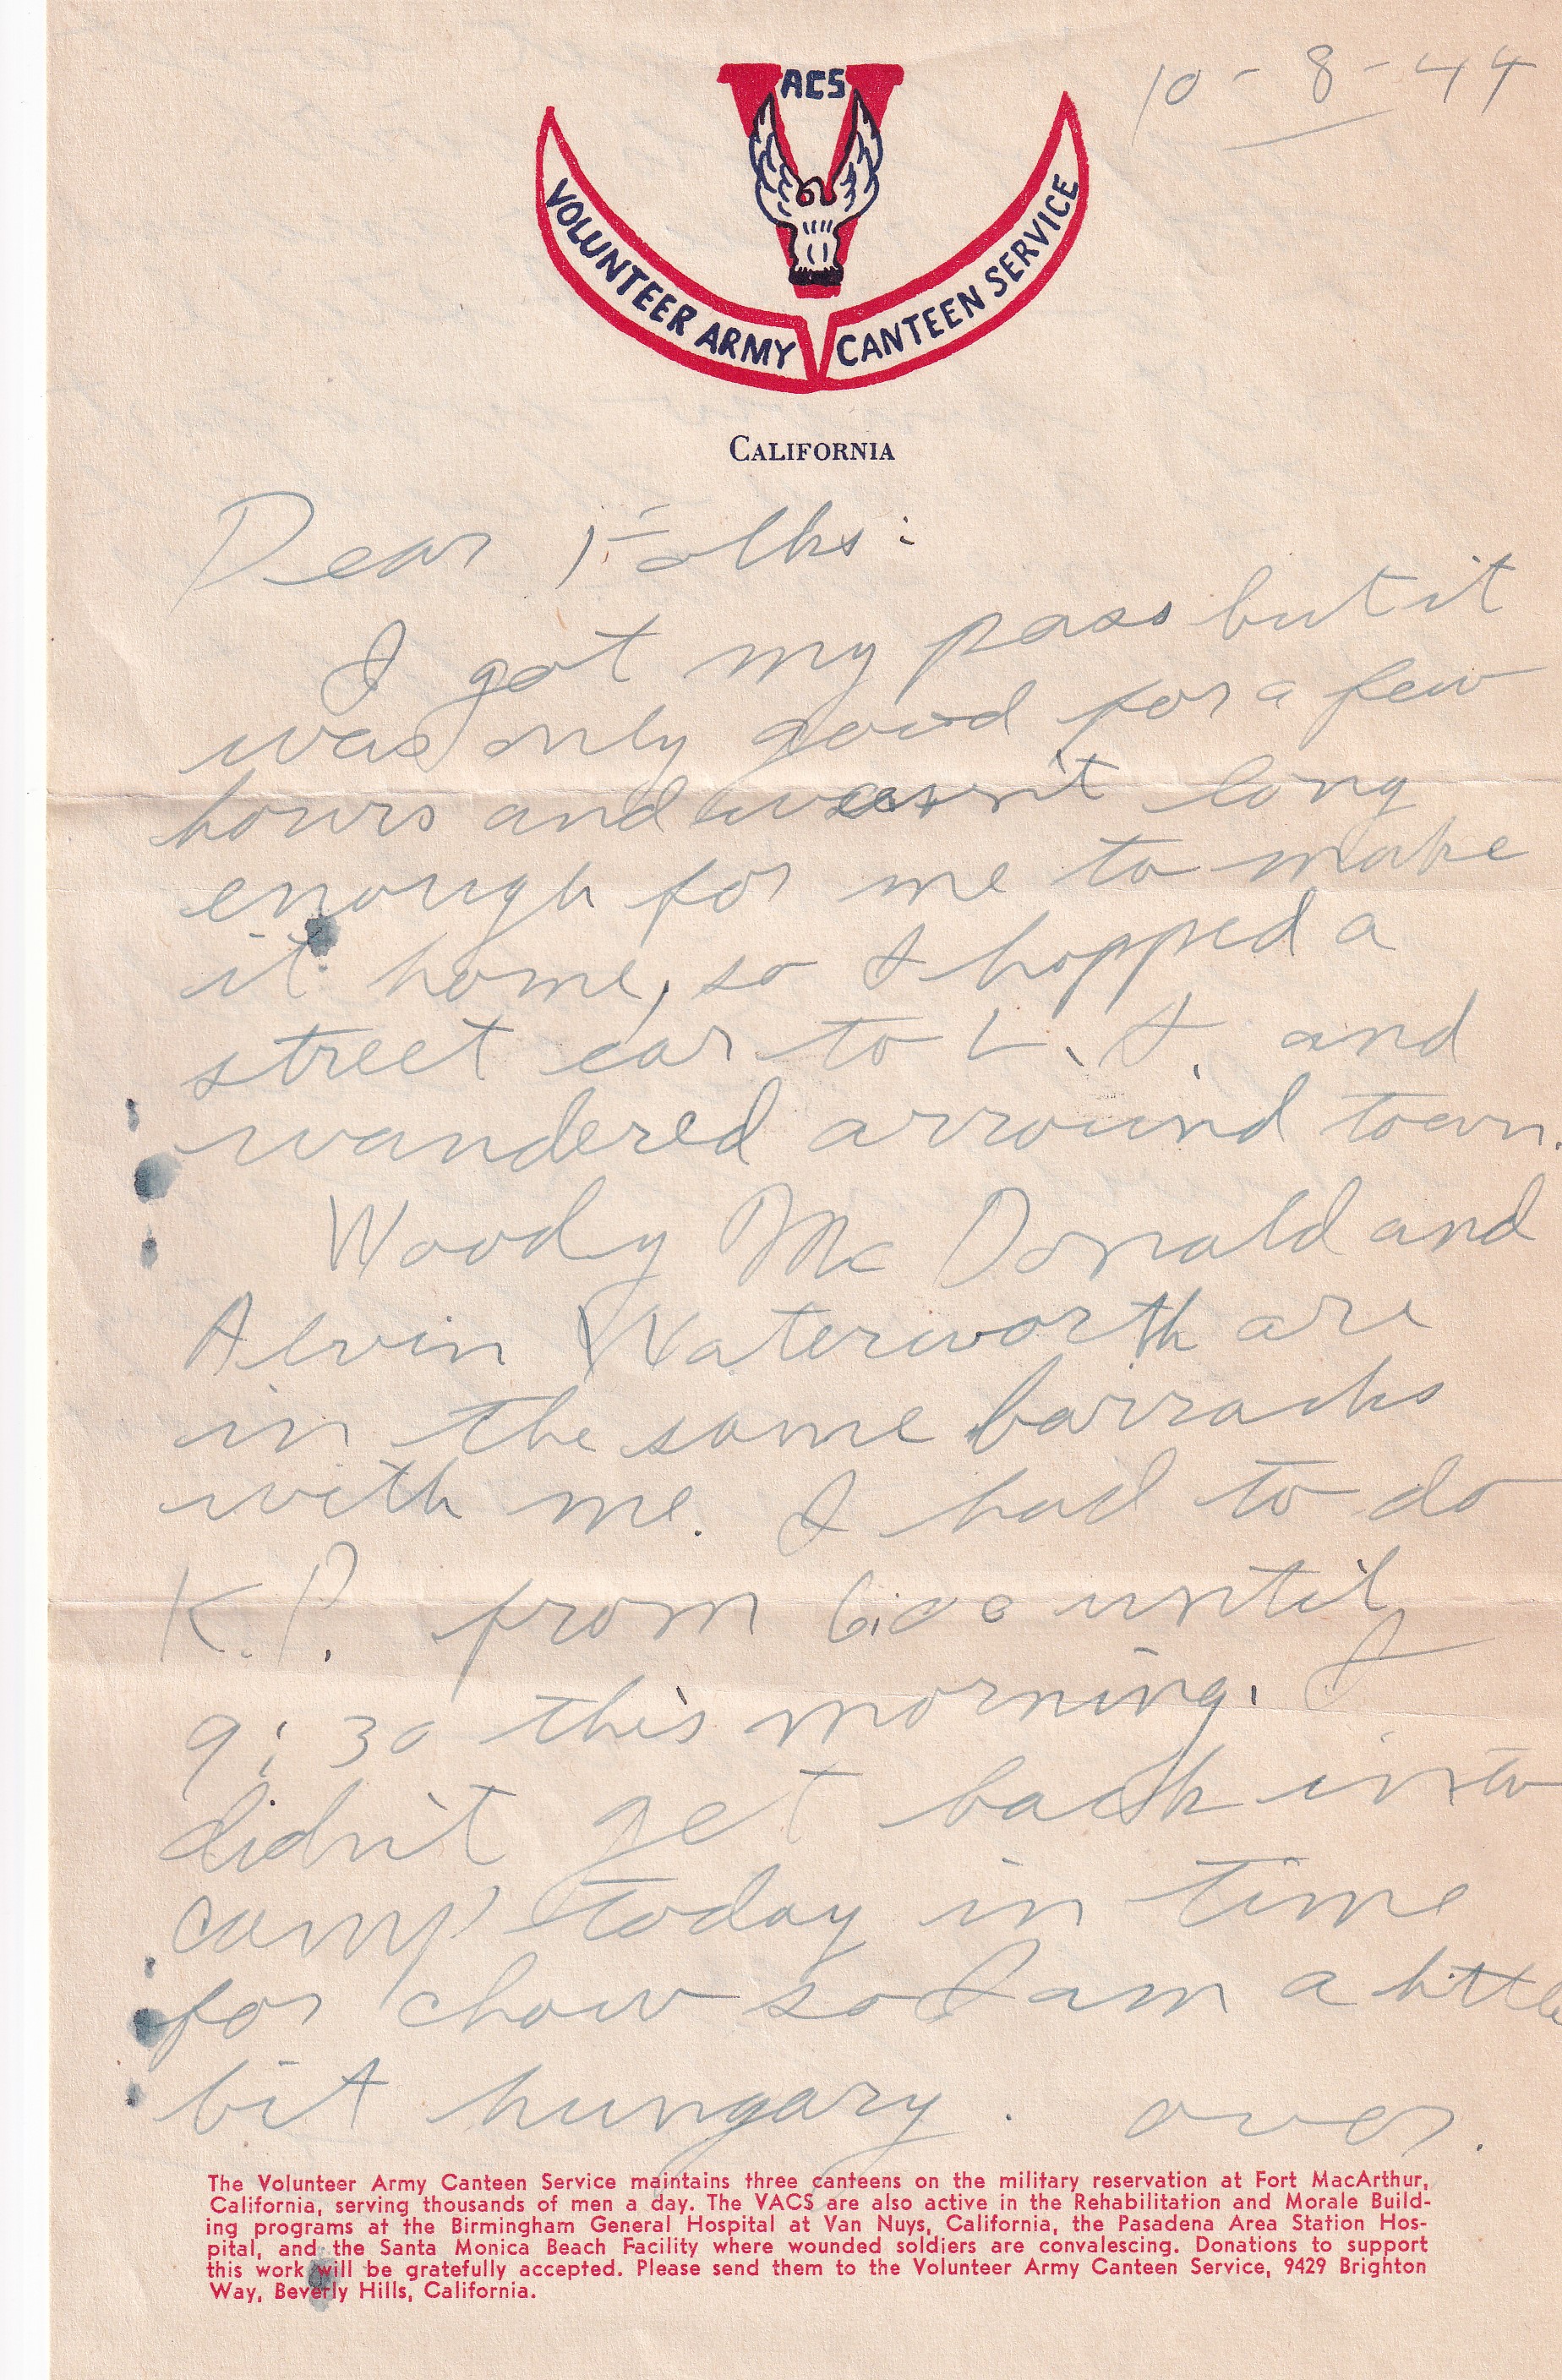 10-8-44
ACS
VOLUNTEER ARMY CANTEEN SERVICE
CALIFORNIA
Dear Folks:
I got my pass but it
was only good for a few
hours and wasn't long
enough for me to make
it home, so I hopped a
street car to L.A. and
wandered arround town.
Woody McDonald and
Alvin Waterworth are
in the same barracks
with me. I had to do
K.P. from 6:00 until
9:30 this morning. I
didn't get back into
camp today in time
for chow so I am a little
bit hungary. over.
The Volunteer Army Canteen Service maintains three canteens on the military reservation at Fort MacArthur,
California, serving thousands of men a day. The VACS are also active in the Rehabilitation and Morale Build-
ing programs at the Birmingham General Hospital at Van Nuys, California, the Pasadena Area Station Hos-
pital, and the Santa Monica Beach Facility where wounded soldiers are convalescing. Donations to support
this work will be gratefully accepted. Please send them to the Volunteer Army Canteen Service, 9429 Brighton
Way, Beverly Hills, California.